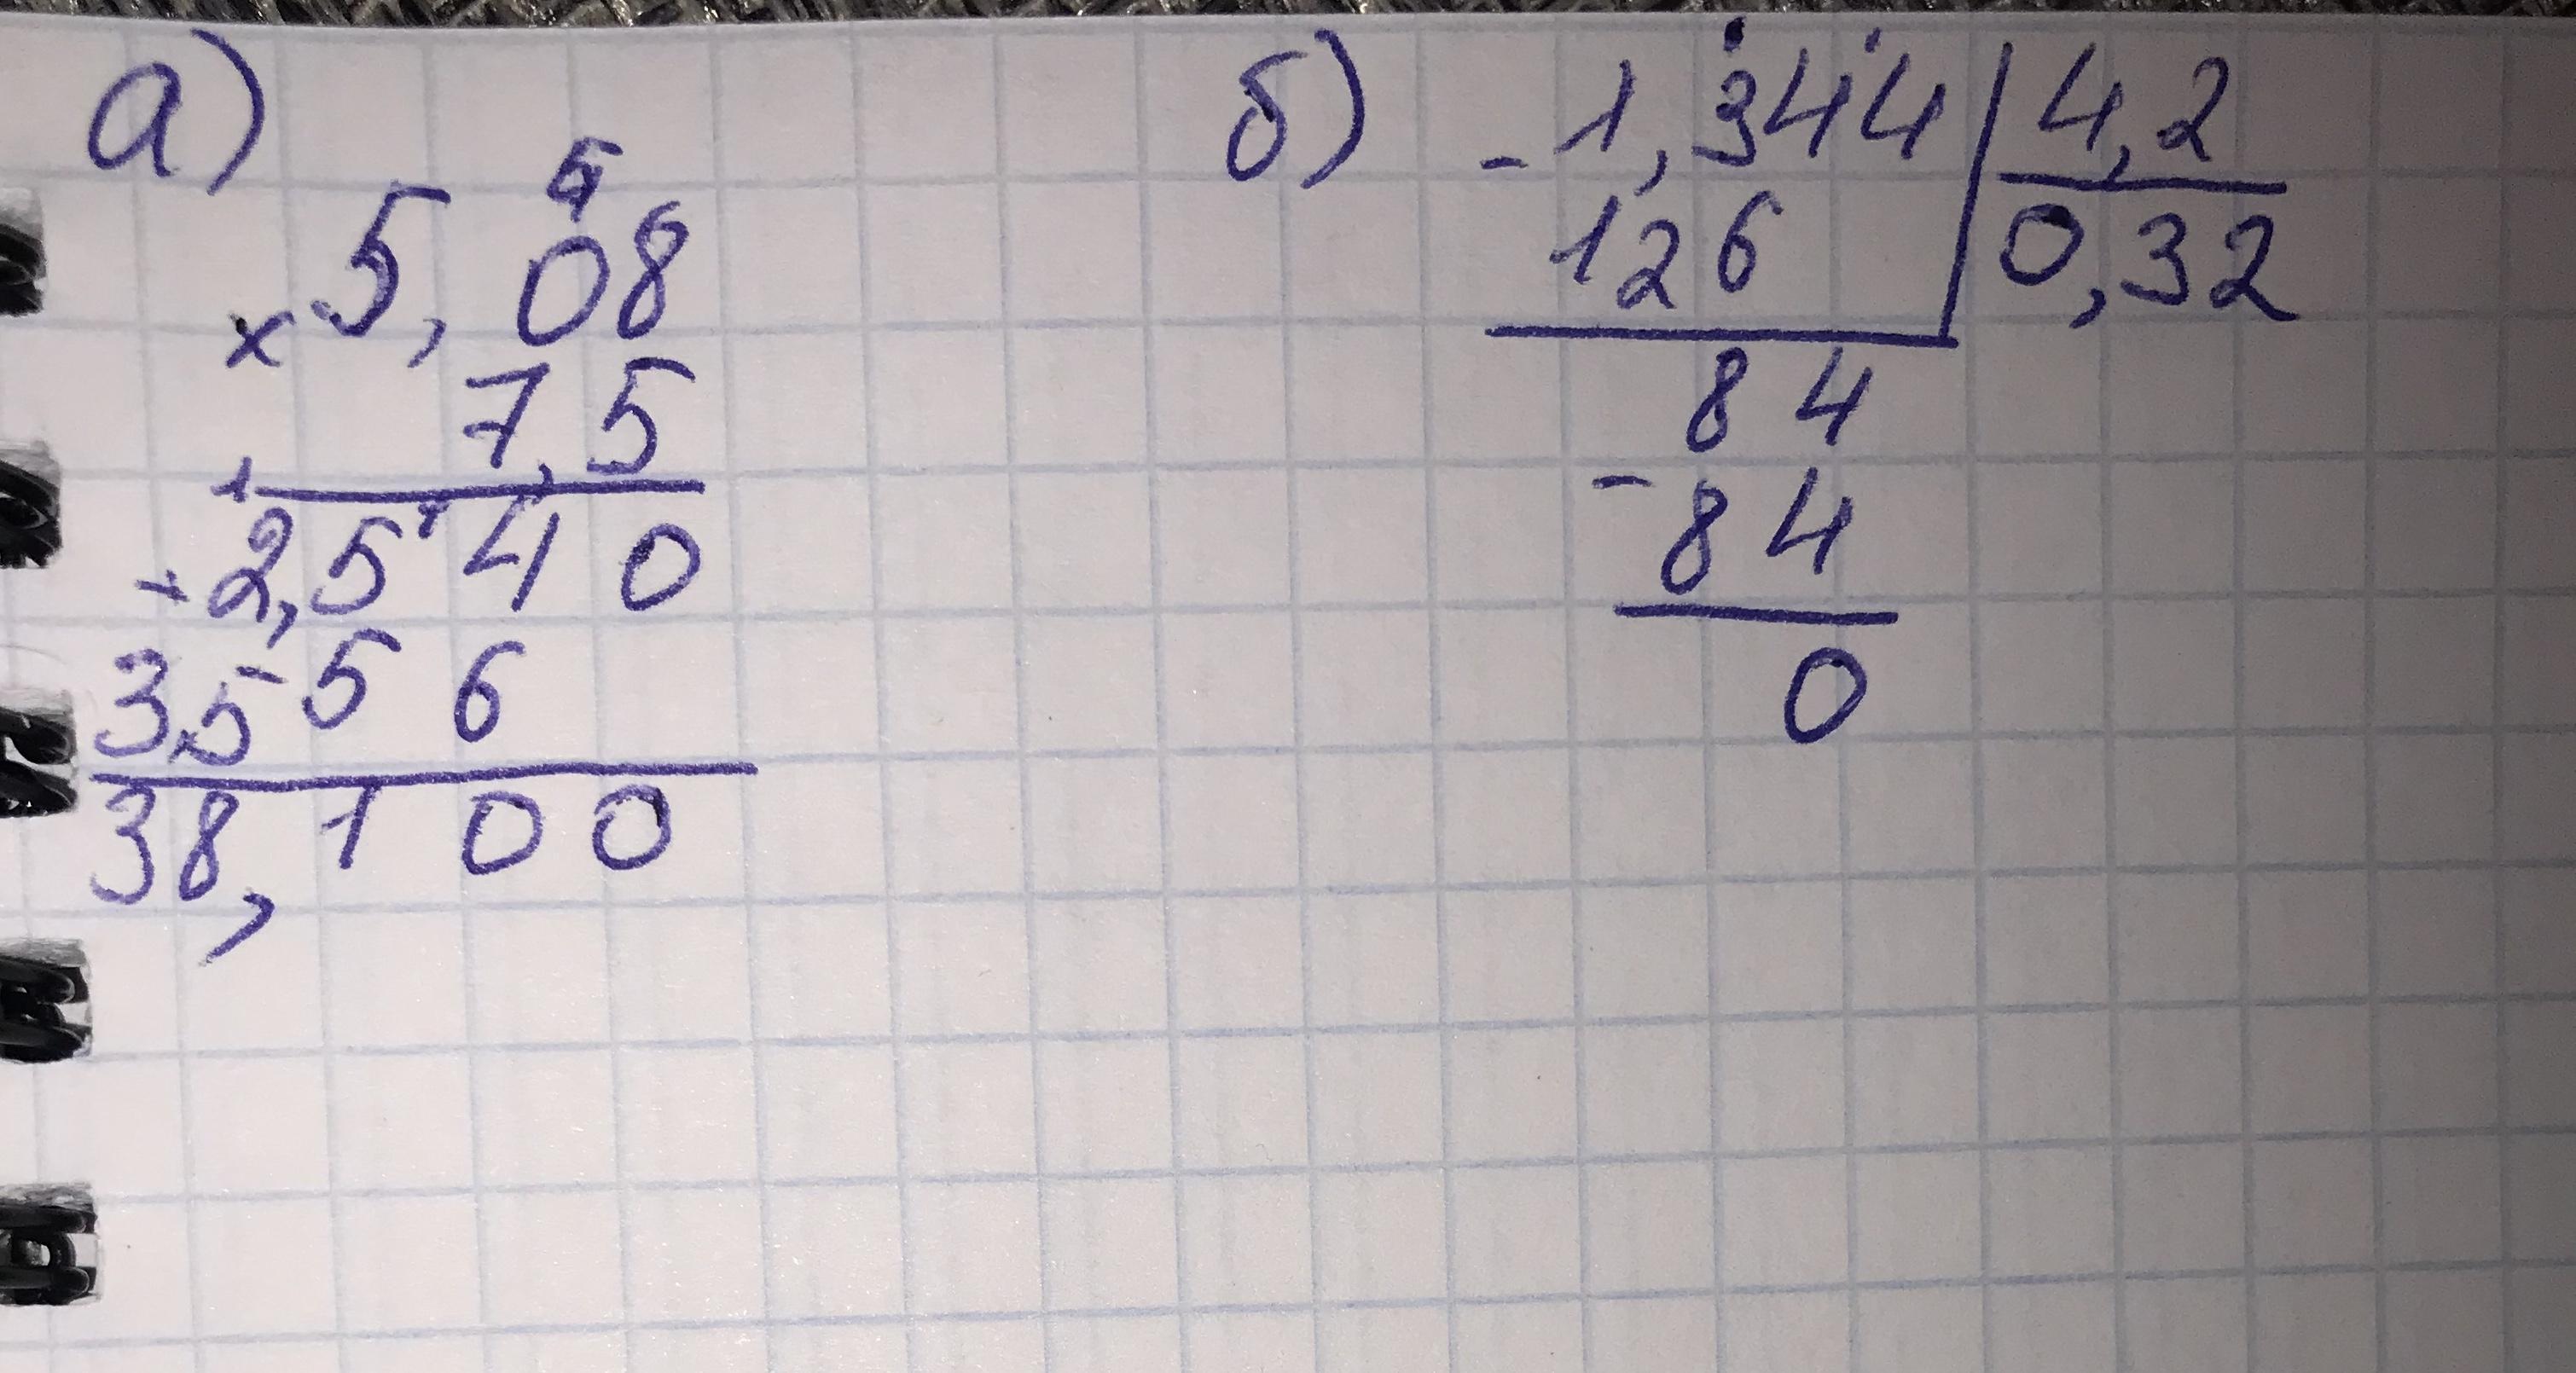 а)
5
5,08
× 7,5
2,540
3556
38,100
б)
- 1,344 | 4,2
126 | 0,32
84
- 84
0